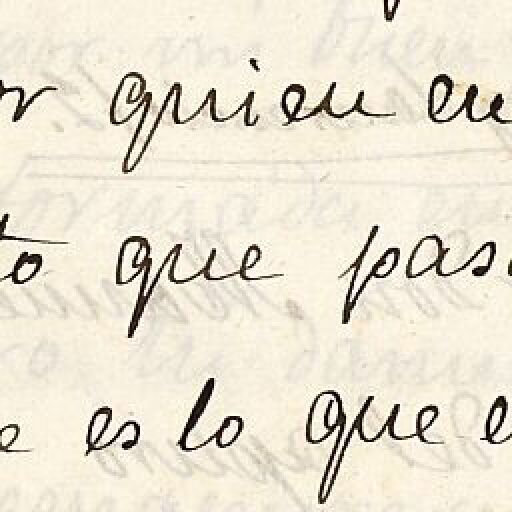 r quien en
to que pas
e es lo que e